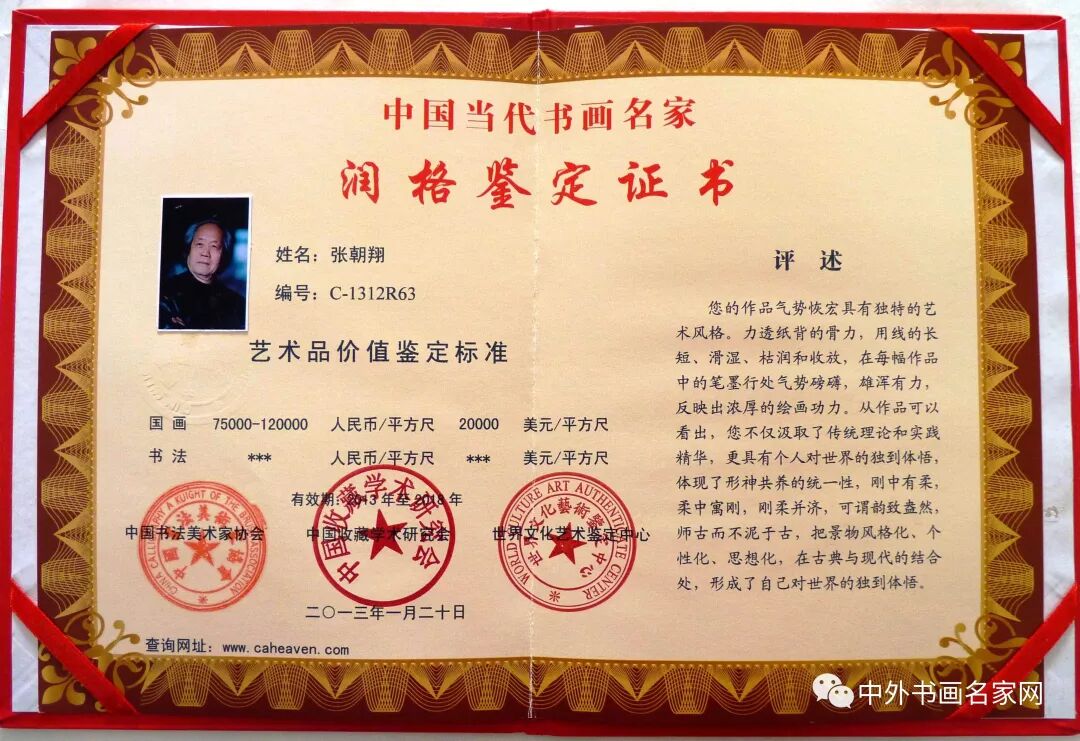 中国当代书画名家
润格鉴定证书
姓名：张朝翔
编号：C-1312R63
艺术品价值鉴定标准
国画 75000-120000 人民币/平方尺 20000 美元/平方尺
书法 *** 人民币/平方尺 *** 美元/平方尺
有效期：2013年至2018年
中国书法美术家协会 中国收藏学术研究会 世界文化艺术鉴定中心
中国收藏学术研究会
WORLD CULTURE ART AUTHENTICATE CENTER
世界文化藝術鑒定中心
二〇一三年一月二十日
查询网址：www.caheaven.com
评述
您的作品气势恢宏具有独特的艺
术风格。力透纸背的骨力，用线的长
短、滑湿、枯润和收放，在每幅作品
中的笔墨行处气势磅礴，雄浑有力，
反映出浓厚的绘画功力。从作品可以
看出，您不仅汲取了传统理论和实践
精华，更具有个人对世界的独到体悟，
体现了形神共养的统一性，刚中有柔，
柔中寓刚，刚柔并济，可谓韵致盎然，
师古而不泥于古，把景物风格化、个
性化、思想化，在古典与现代的结合
处，形成了自己对世界的独到体悟。
中外书画名家网